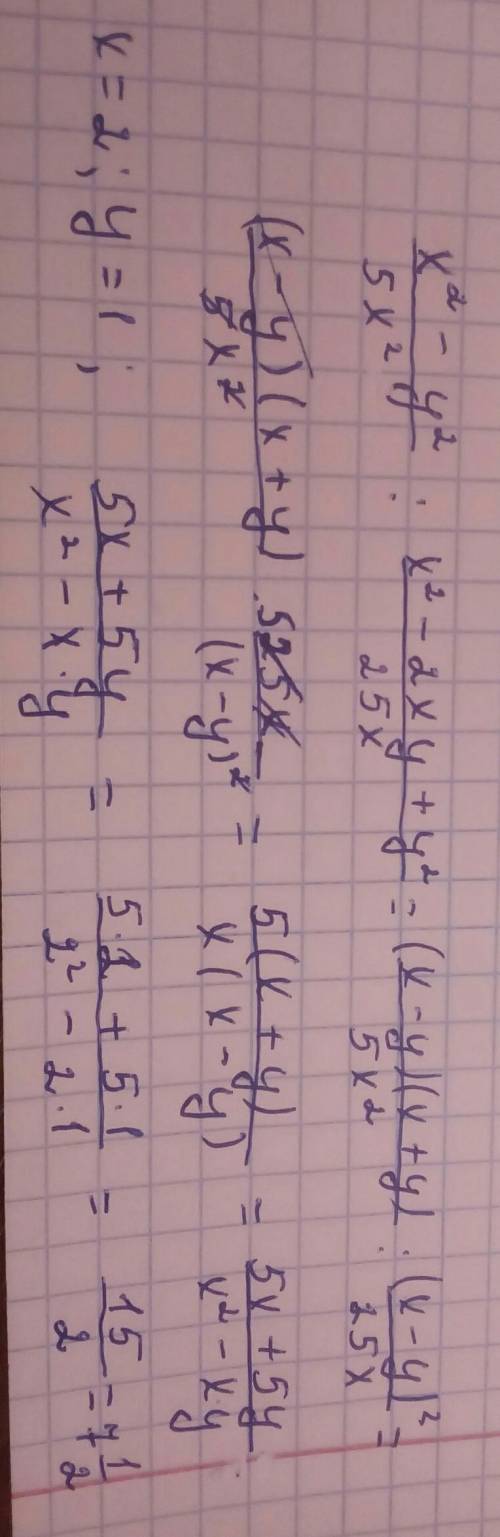 x² - y² / 5x² : x² - 2xy + y² / 25x = (x-y)(x+y) / 5x² : (x-y)² / 25x =
(x-y)(x+y) / 5x² · 5 25x / (x-y)² = 5(x+y) / x(x-y) = 5x+5y / x²-xy.
x=2; y=1; 5x+5y / x²-x·y = 5·2+5·1 / 2²-2·1 = 15 / 2 = 7 1/2